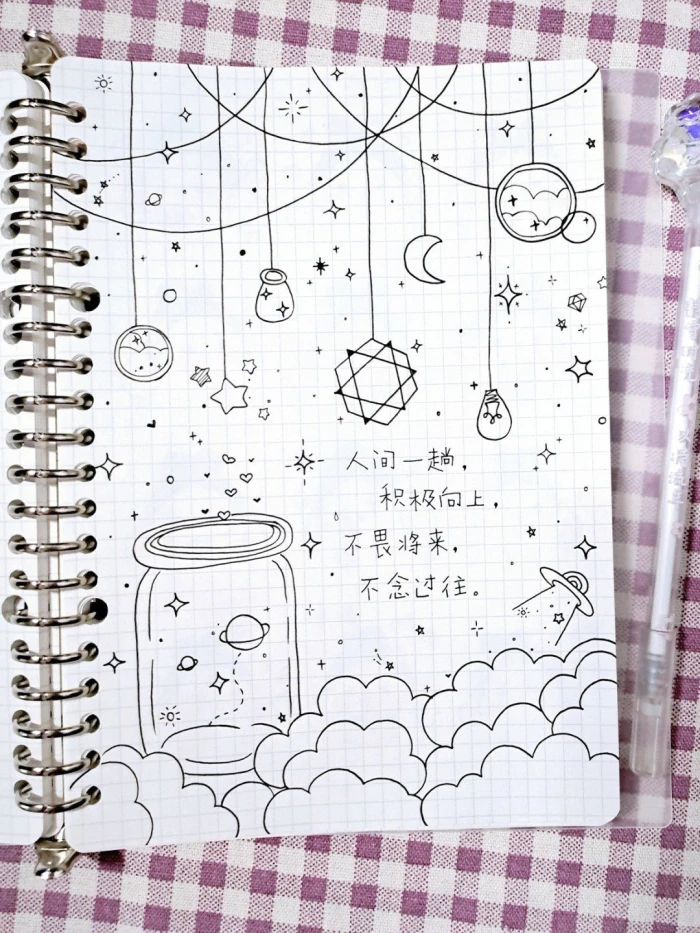 人间一趟，
积极向上，
不畏将来，
不念过往。